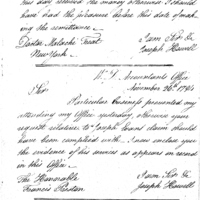 this day received the money otherwise I should
have had the pleasure before this date of mak-
ing the remittance.
Doctor Malachi Treat
New York
I am Sir &c
Joseph Howell
W. D. Accountants Office
November 26th 1794
Sir
Particular business prevented my
attending my Office yesterday, Otherwise your
request relative to Joseph Evans claim should
have been complied with. I now enclose you
the evidence of his services as appears on record
in this Office.
The Honorable
Francis Preston
I am Sir &c
Joseph Howell